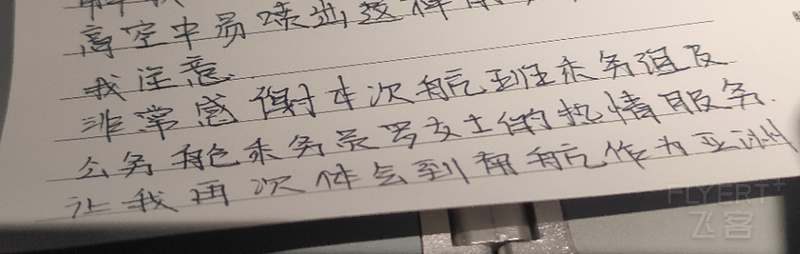 高空中员
我注意
非常感谢本次航班乘务组及
公务舱乘务员罗女士的热情服务.
让我再次体会到南航作为亚洲
FLYERT+
飞客